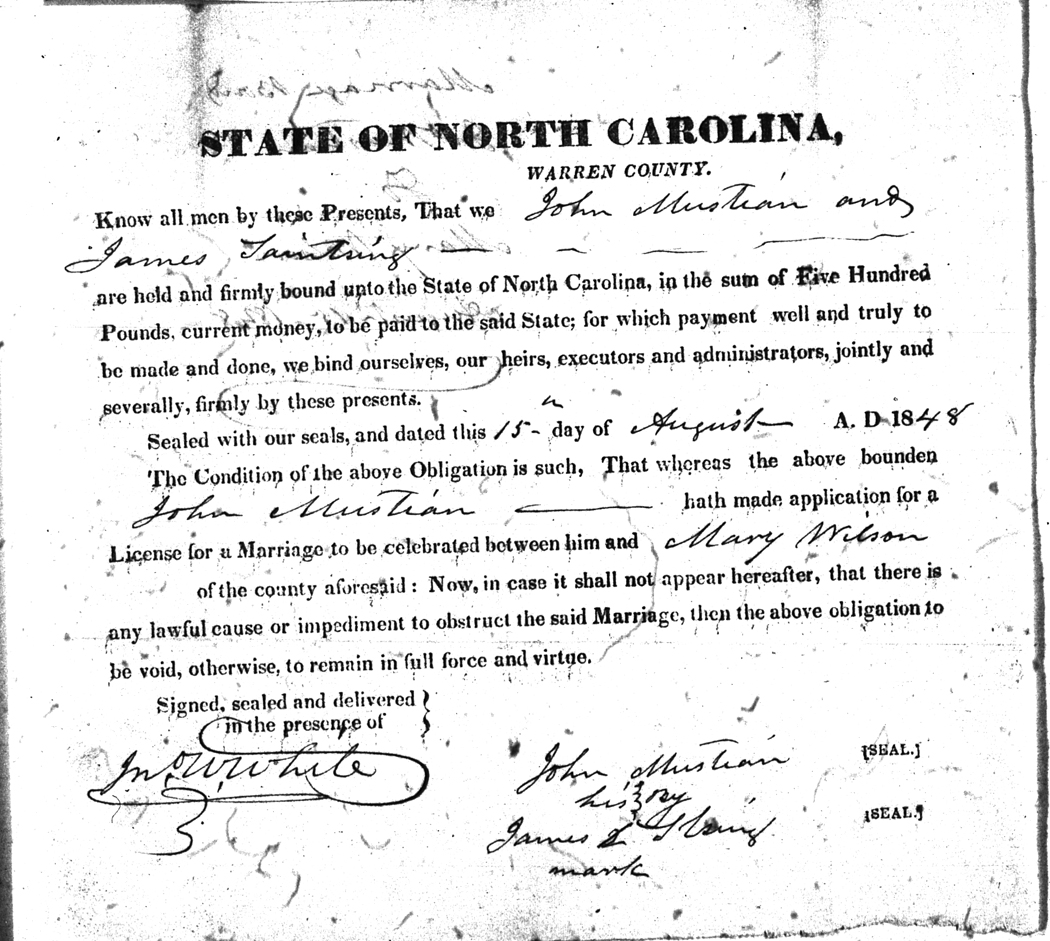 STATE OF NORTH CAROLINA,
WARREN COUNTY.
Know all men by these Presents, That we John Mustian and
James
are held and firmly bound unto the State of North Carolina, in the sum of Five Hundred
Pounds, current money, to be paid to the said State; for which payment well and truly to
be made and done, we bind ourselves, our heirs, executors and administrators, jointly and
severally, firmly by these presents.
Sealed with our seals, and dated this 15 day of August A. D 1848
The Condition of the above Obligation is such, That whereas the above bounden
John Mustian hath made application for a
License for a Marriage to be celebrated between him and Mary Wilson
of the county aforesaid: Now, in case it shall not appear hereafter, that there is
any lawful cause or impediment to obstruct the said Marriage, then the above obligation to
be void, otherwise, to remain in full force and virtue.
Signed, sealed and delivered
in the presence of
Jno. W. White
John Mustian [SEAL.]
his
James String [SEAL.]
mark